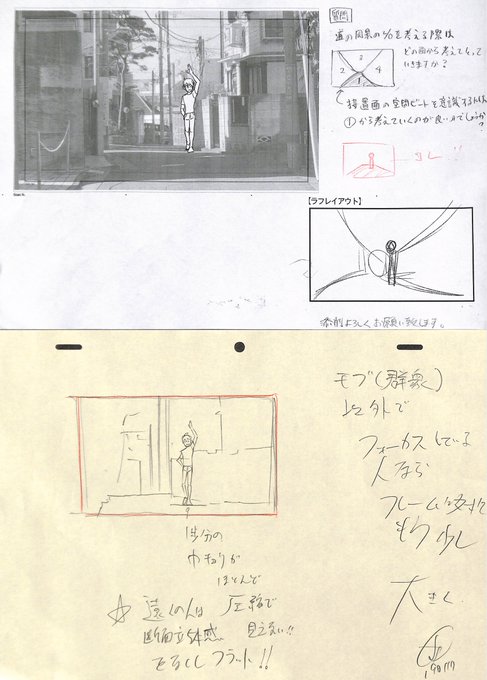 質問
道の図系の%を考える際は
どの面から考えてなって
いきますか？
2
3
4
1
接置面の空間ビートを意識するには
①から考えていくのが良いのでしょうか？
【ラフレイアウト】
添削よろしくお願い致します。
モブ(群衆)
以外で
フォーカスしている
人なら
フレームに対して
もう少し
大きく
1歩分の
巾キョリが
ほとんど
☆遠くの人は圧縮で
断面立体感 見えない!!
フラット!!